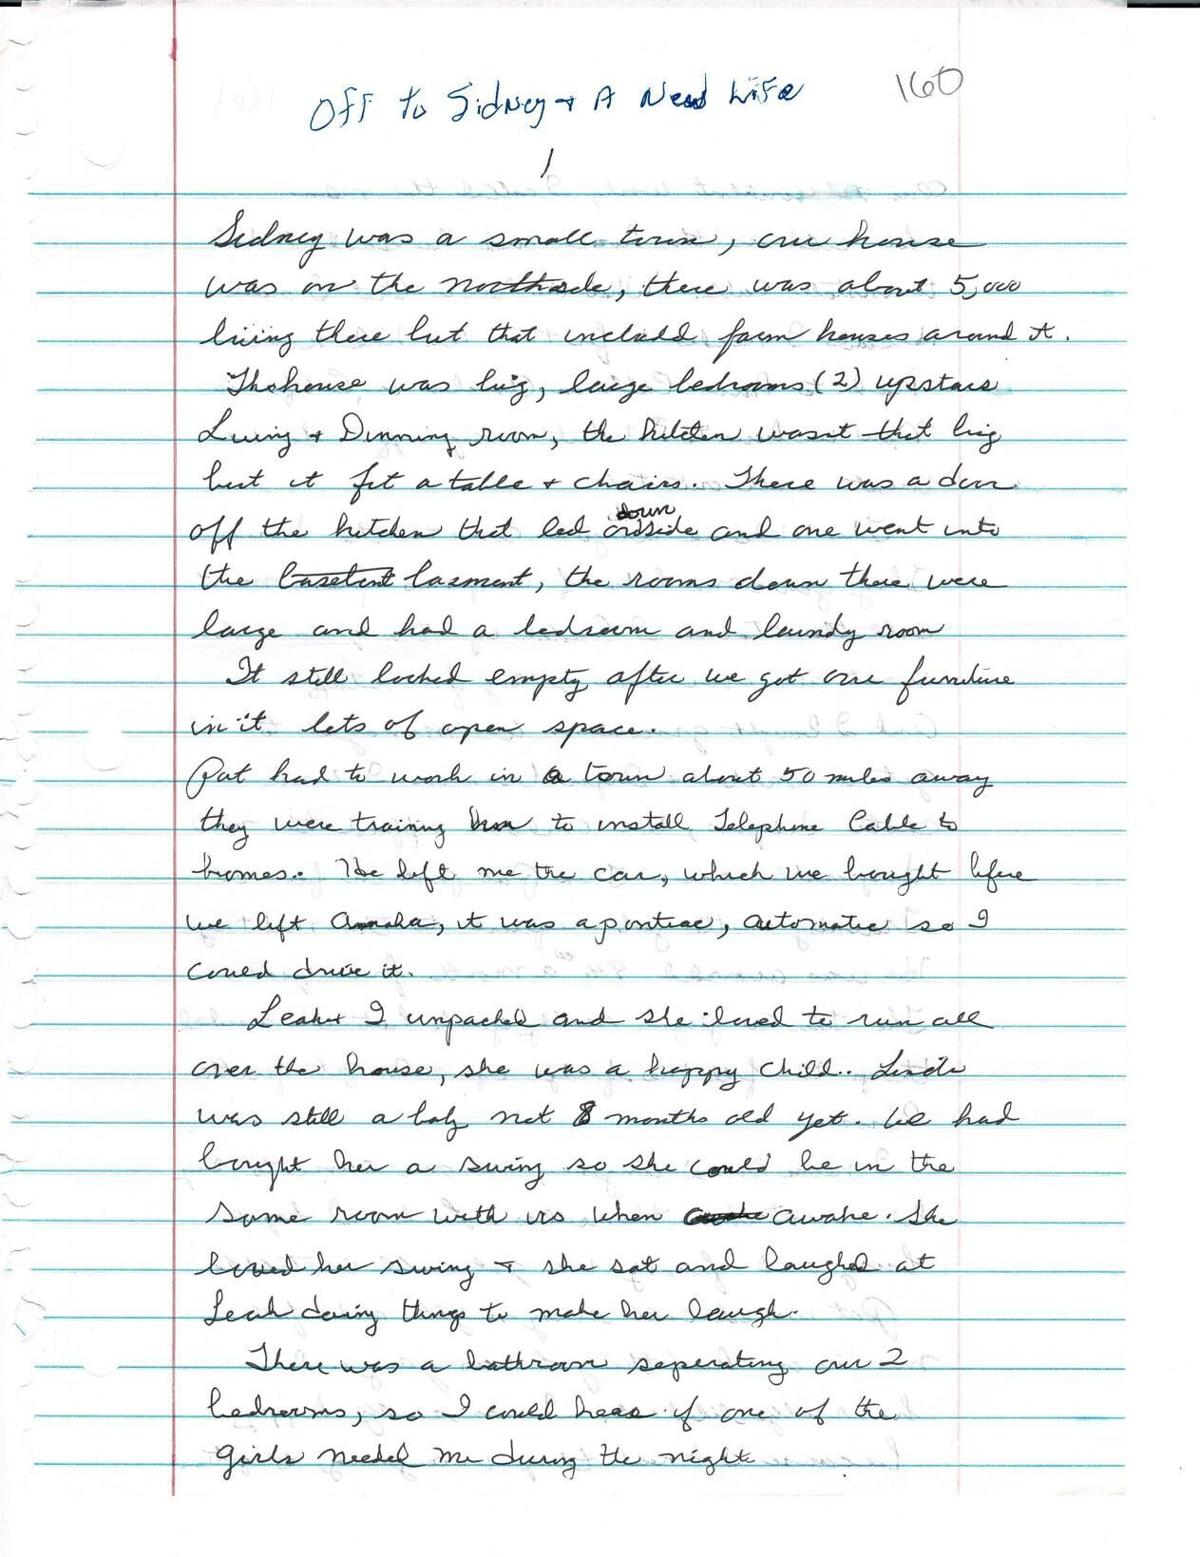 160
Off to Sidney + A New Life
1
Sidney was a small town, our house
was on the northside, there was about 5,000
living there but that includd farm houses around it.
The house was big, large bedrooms (2) upstars
Living + Dinning room, the kitchen wasnt that big
but it fit a table + chairs. There was a door
off the kitchen that led down outside and one went into
the basetent basment, the rooms down there were
large and had a bedroom and laundy room
It still looked empty after we got our furniture
in it lots of open space.
Pat had to work in a town about 50 miles away
they were training him to install Telephone Cable to
homes. He left me the car, which we bought before
we left Omaha, it was a pontiac, automatic so I
could drive it.
Leah + I unpacked and she loved to run all
over the house, she was a happy child.. Linda
was still a baby not 8 months old yet. We had
bought her a swing so she could be in the
same room with us when awake. She
loved her swing + she sat and laughed at
Leah doing things to make her laugh.
There was a bathroom seperating our 2
bedrooms, so I could hear if one of the
girls needed me during the night